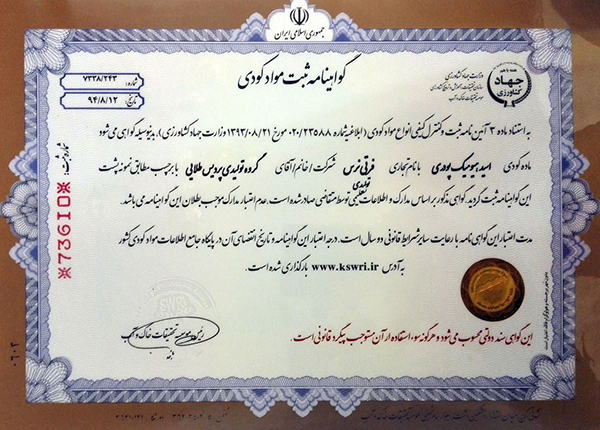 جمهوری اسلامی ایران
گواهینامه ثبت مواد کودی
شماره: ۷۳۳۸/۲۴۳
تاریخ: ۹۴/۸/۱۲
جهاد
کشاورزی
وزارت جهاد کشاورزی
سازمان تحقیقات، آموزش و ترویج کشاورزی
موسسه تحقیقات خاک و آب
به استناد ماده ۳ آئین نامه ثبت و کنترل کیفی انواع مواد کودی (ابلاغیه شماره ۰۲۰/۲۳۵۸۸ مورخ ۱۳۹۳/۰۸/۲۱ وزارت جهاد کشاورزی)، بدینوسیله گواهی می شود
ماده کودی اسید هیومیک پودری با نام تجاری فرتی نرس شرکت/خانم/آقای گروه تولیدی پردیس طلایی با برچسب مطابق نمونه پشت
این گواهینامه ثبت گردید. گواهی مذکور بر اساس مدارک و اطلاعات تولیدی توسط متقاضی صادر شده است، عدم اعتبار مدارک موجب بطلان این گواهینامه می باشد.
مدت اعتبار این گواهی نامه با رعایت سایر شرایط قانونی دو سال است. درجه اعتبار این گواهینامه و تاریخ انقضای آن در پایگاه جامع اطلاعات مواد کودی کشور
به آدرس www.kswri.ir بارگذاری شده است.
شماره ثبت:
※73610※
SWRI
رئیس موسسه تحقیقات خاک و آب
این گواهی سند دولتی محسوب می شود و هرگونه سوء استفاده از آن مستوجب پیگرد قانونی است.
۰۶۰۲